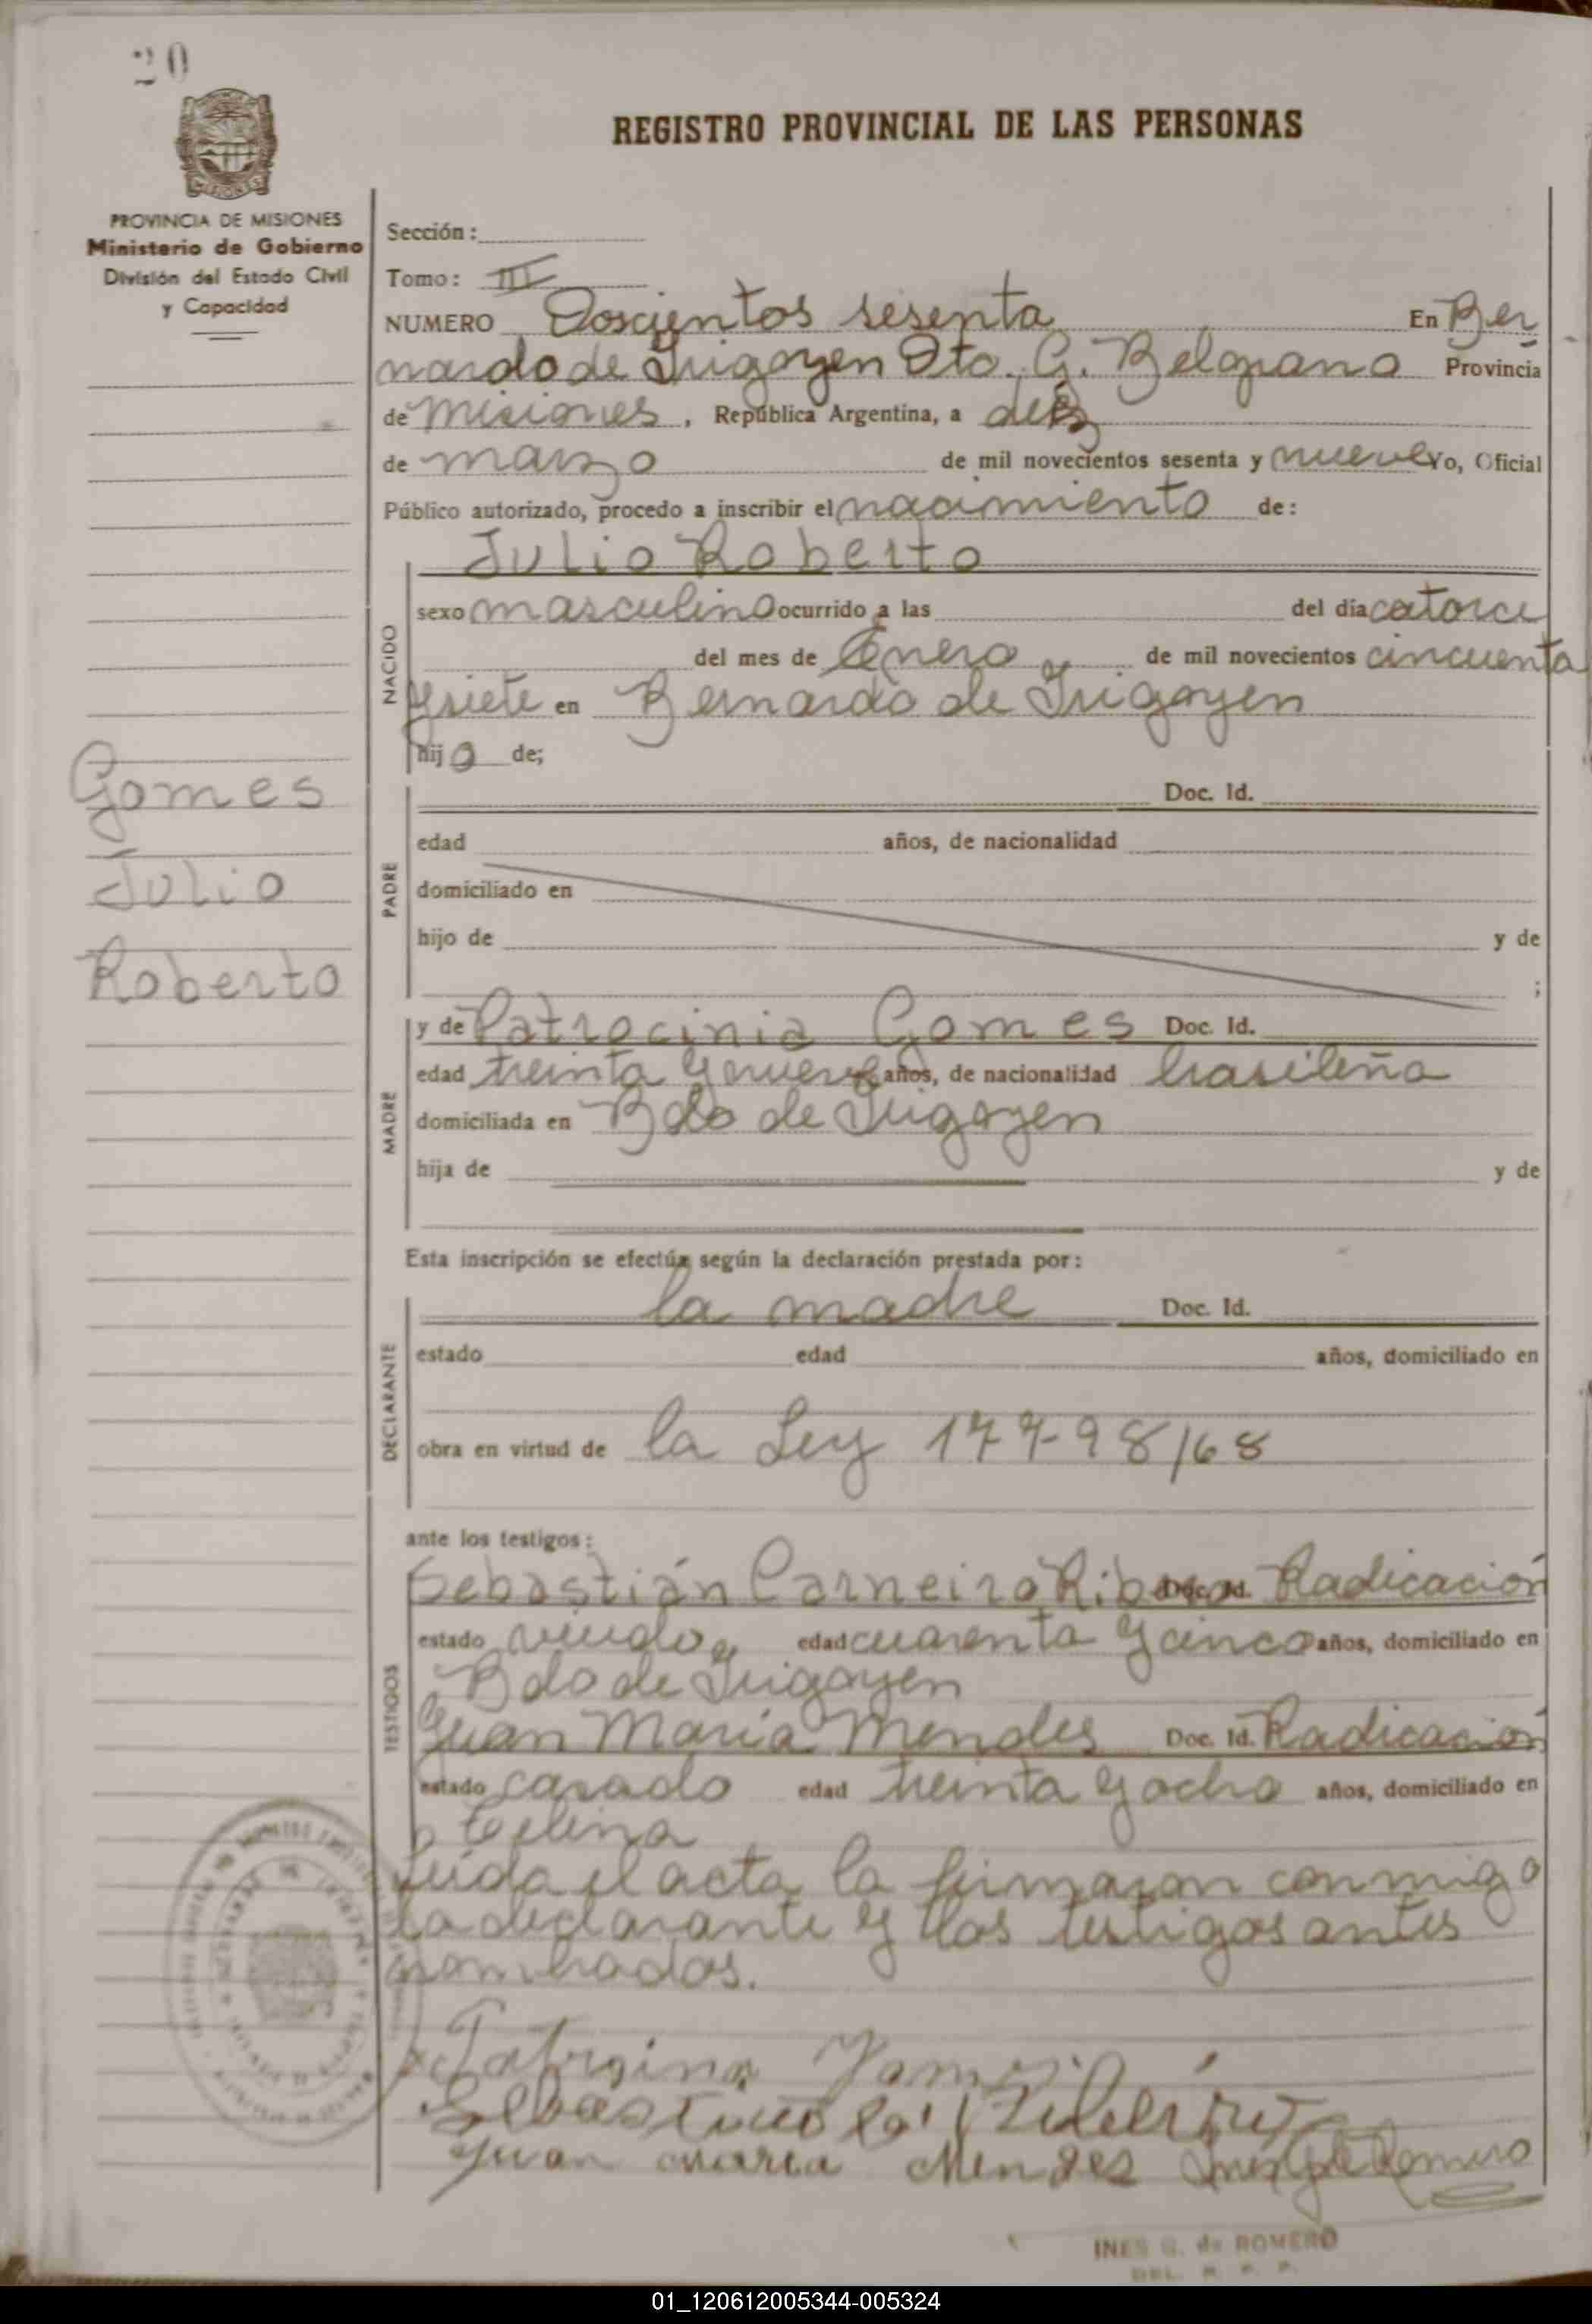 20
REGISTRO PROVINCIAL DE LAS PERSONAS
MISIONES
PROVINCIA DE MISIONES
Ministerio de Gobierno
División del Estado Civil
y Capacidad
Sección:
Tomo: III
NUMERO Doscientos sesenta En Ber
nardo de Irigoyen Dto. G. Belgrano Provincia
de Misiones, República Argentina, a diez
de marzo de mil novecientos sesenta y nueve Yo, Oficial
Público autorizado, procedo a inscribir el nacimiento de:
Julio Roberto
NACIDO
sexo masculino ocurrido a las del día catorce
del mes de Enero de mil novecientos cincuenta
y siete en Bernardo de Irigoyen
hijo de;
Gomes
Julio
Roberto
PADRE
Doc. Id.
edad años, de nacionalidad
domiciliado en
hijo de y de
;
MADRE
y de Patrocinia Gomes Doc. Id.
edad treinta y nueve años, de nacionalidad brasileña
domiciliada en Bdo de Irigoyen
hija de y de
Esta inscripción se efectúa según la declaración prestada por:
DECLARANTE
la madre Doc. Id.
estado edad años, domiciliado en
obra en virtud de la Ley 177-98/68
ante los testigos:
TESTIGOS
Sebastián Carneiro Doc. Id. Radicación
estado viudo edad cuarenta y cinco años, domiciliado en
Bdo de Irigoyen
Juan Maria Mendes Doc. Id. Radicación
estado casado edad treinta y ocho años, domiciliado en
leida el acta la firmaron conmigo
la declarante y los testigos antes
nombrados.
Juan maria Mendes
INES G. de ROMERO
DEL. R. P. P.
01_120612005344-005324